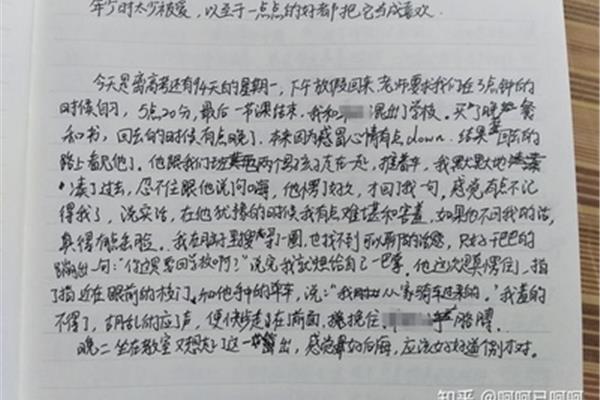 年少时太少被爱，以至于一点点的好都把它当成喜欢.
今天是离高考还有94天的星期一，下午放假回来，老师要求我们在3点钟的
时候自习，5点20分，最后一节课结束，我和 混出了学校。买了晚餐
和书，回去的时候有点晚了，本来因为感冒心情有点down，结果回去的
路上看见他了。他跟我们班两个男孩子走在一起，推着车，我默默地
凑了过去，忍不住跟他说了句嗨，他愣了好久，才回我一句，感觉有点不记
得我了，说实话，在他犹豫的时候我有点难堪和害羞，如果他不回我的话，
真得有点丢脸。我在脑子里搜寻了一圈，也找不到可以聊的话题，只好干巴巴的
蹦出一句："你这是要回学校啊？"说完我就想给自己一巴掌。他这次是真愣住，指
了指近在眼前的校门，和他手中的单车，说："我从家骑车过来的。"我羞的
不得了，胡乱的应了声，便快步走在了前面，挽住 胳膊。
晚二坐在教室又想起了这一出，感觉好后悔，应该好好道个别才对。
知乎 @啊啊已啊啊